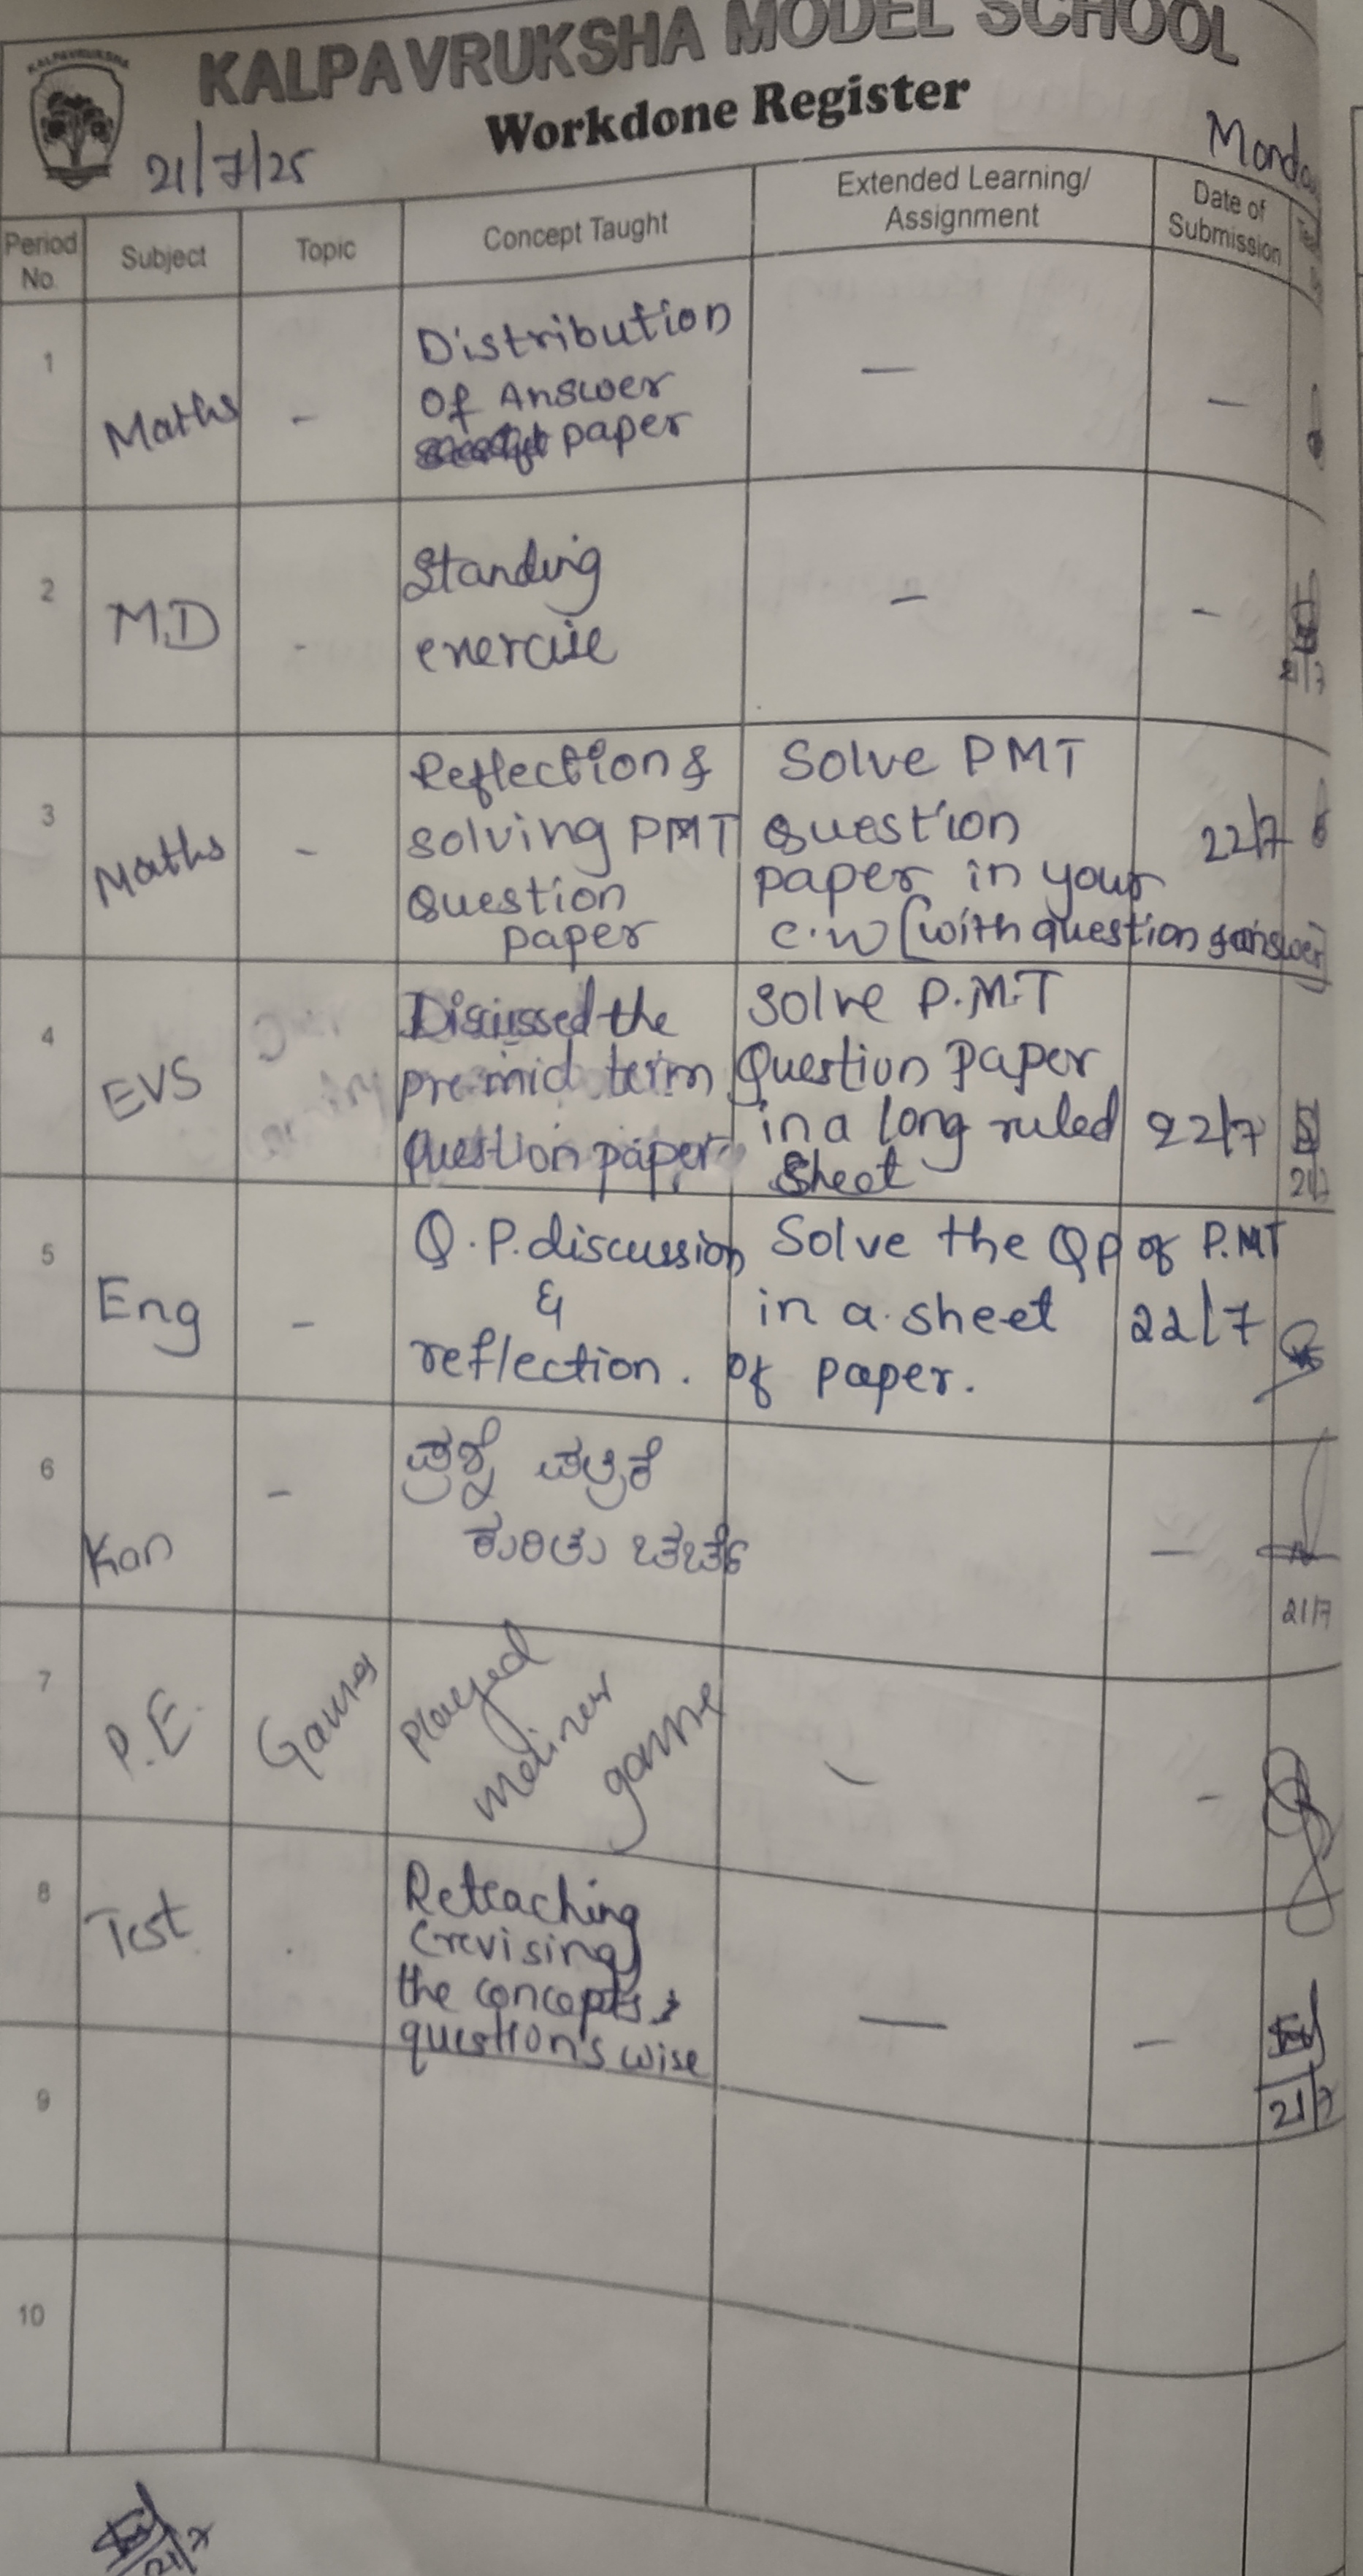 KALPAVRUKSHA
KALPAVRUKSHA MODEL SCHOOL
Workdone Register
21/7/25
Period No.
Subject
Topic
Concept Taught
Extended Learning/
Assignment
Date of
Submission
1
Maths
-
Distribution
Of Answer
paper
—
—
2
M.D
-
Standing
exercise
—
-
3
Maths
-
Reflection &
solving PMT
Question
paper
Solve PMT
question
paper in your
C.W (with question & answer)
22/7
4
EVS
Discussed the
pre mid term
Question paper
Solve P.M.T
Question Paper
in a long ruled
Sheet
22/7
21/7
5
Eng
-
Q.P. discussion
&
reflection.
Solve the QP of P.MT
in a sheet
of paper.
22/7
6
Kan
-
ಪ್ರಶ್ನೆ ಪತ್ರಿಕೆ
ಕುರಿತು ಚರ್ಚೆ
—
21/7
7
P.E.
Games
Played
game
-
-
8
Test
Reteaching
(revising)
the concepts
question's wise
—
—
21/7
9
10
21/7